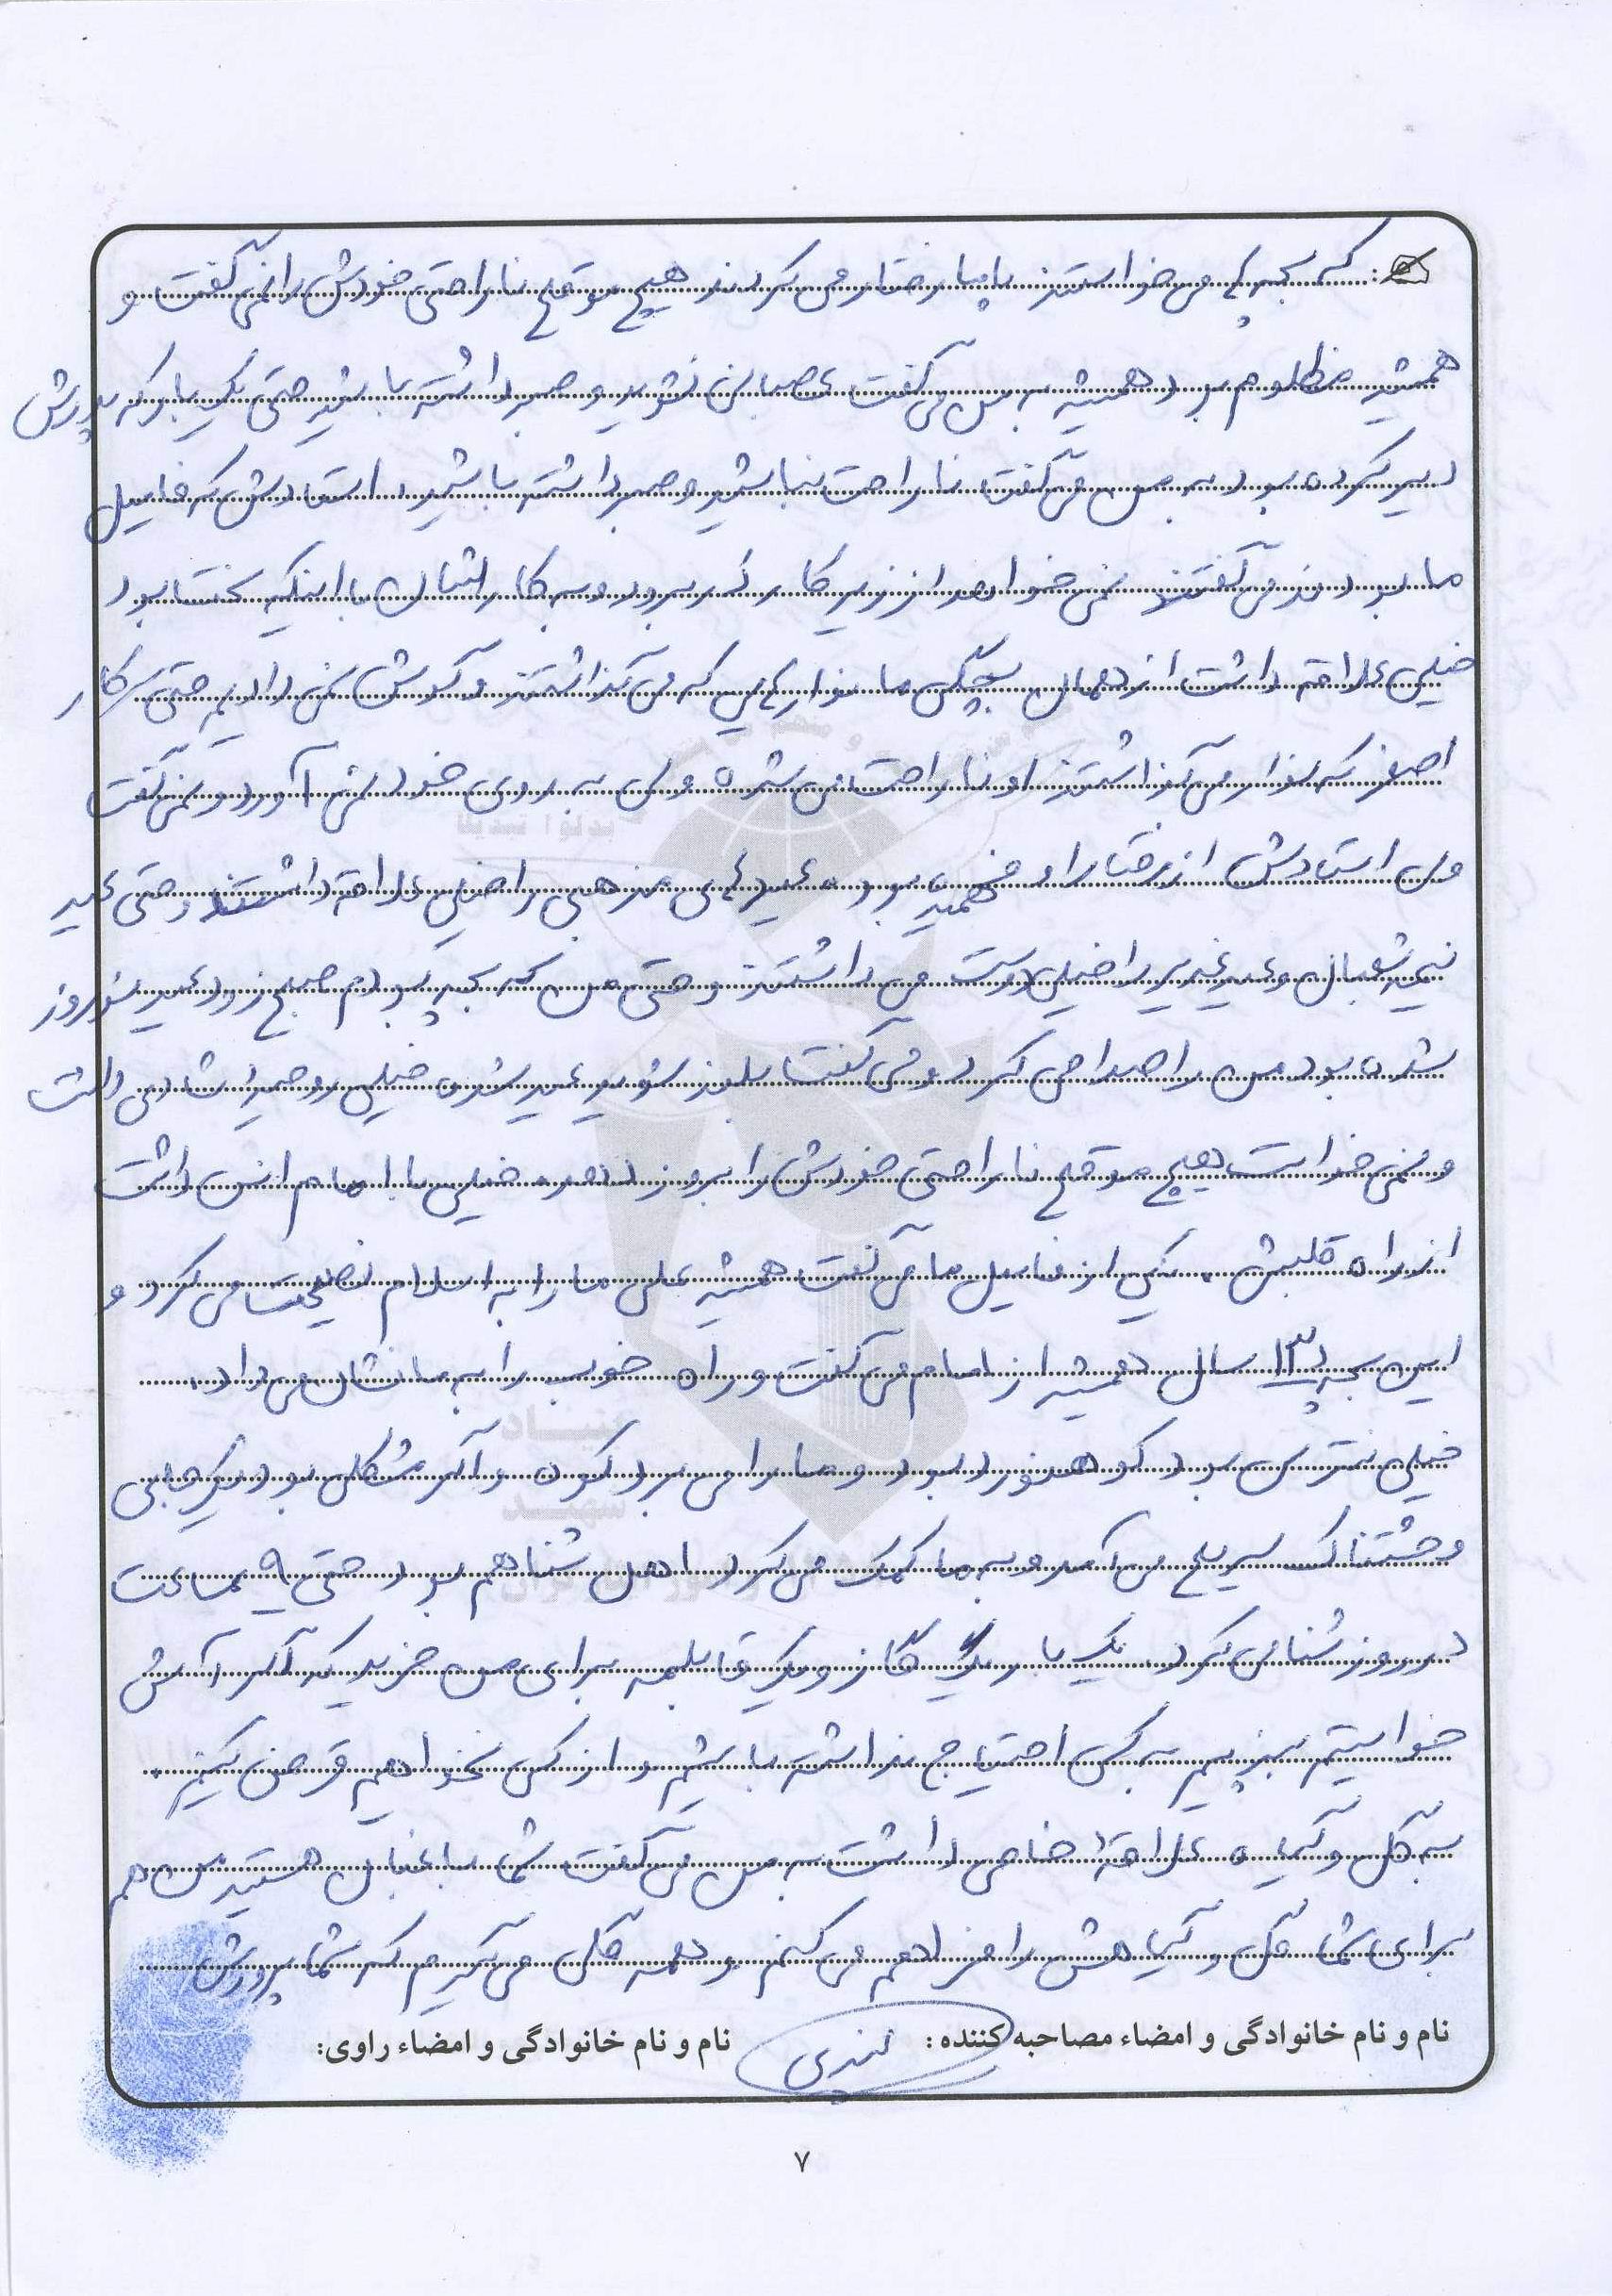 که بچه های می خواستند با پا رفتار می کردند هیچ موقع ناراحتی خودش را نمی گفت و
همیشه مظلوم بود همیشه به من می گفت عصبانی نشوید و صبر داشته باشید حتی یک بار که پدرش
دیر کرده بود به من می گفت ناراحت نباشید و صبر داشته باشید. استادش که فامیل
ما بودند می گفتند نمی خواهد از زیر کار در برود و به کارشان با اینکه سخت بود
خیلی علاقه داشت از همان بچگی ما نوارهایی که می گذاشتند و گوش نمی دادیم حتی سر کار
اصغر که نوار می گذاشتند او ناراحت می شده ولی به روی خود نمی آورد و نمی گفت
ولی استادش از رفتار او فهمیده بود. عیدهای مذهبی را خیلی علاقه داشتند و حتی عید
نیمه شعبان و عید غدیر را خیلی دوست می داشتند و حتی من که بچه بودم صبح زود عید نوروز
شده بود من را صدا می کرد و می گفت بلند شوید عید شده خیلی روحیه شادی داشت
و نمی خواست هیچ موقع ناراحتی خودش را بروز ندهد. خیلی با امام انس داشت
از راه قلبش. یکی از فامیل ما می گفت همیشه علی ما را به اسلام نصیحت می کرد و
این بچه ۱۳ سال همیشه از امام می گفت و راه خوب را به ما نشان می داد.
خیلی نترس بود کوهنورد بود و ما را می برد کوه و اگر مشکلی بود یک جایی
وحشتناک سریع می آمد و به ما کمک می کرد. اهل شنا هم بود حتی ۹ ساعت
در روز شنا می کرد. یک بار یک گاز و یک قابلمه برای من خرید که اگر آش
خواستیم بپزیم به کسی احتیاج نداشته باشیم و از کسی نخواهیم قرض بگیریم.
به گل و گیاه علاقهٔ خاصی داشت به من می گفت شما باغبان هستید من هم
برای شما گل و گیاهش را فراهم می کنم و همه گلی می گیرم که شما پرورش
نام و نام خانوادگی و امضاء مصاحبه کننده: نام و نام خانوادگی و امضاء راوی:
۷